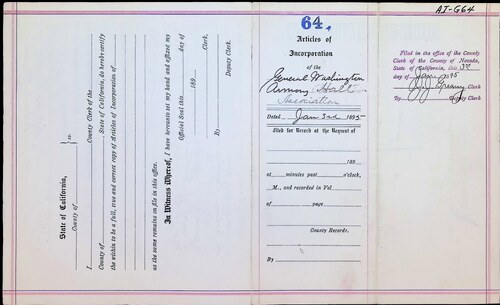 AI-G64
64.
Articles of
Incorporation
of the
General Washington
Armory Hall
Association
Dated Jan 3rd 1895
Filed for Record at the Request of
189
at minutes past o'clock,
M., and recorded in Vol
of page
County Records.
By
Filed in the office of the County
Clerk of the County of Nevada,
State of California, this 3rd
day of Jany 1895
Clerk
By Deputy Clerk
State of California,
County of
ss.
I County Clerk of the
County of , State of California, do hereby certify
the within to be a full, true and correct copy of Articles of Incorporation of
as the same remains on file in this office.
In Witness Whereof, I have hereunto set my hand and affixed my
Official Seal this day of
189
Clerk.
By
Deputy Clerk.